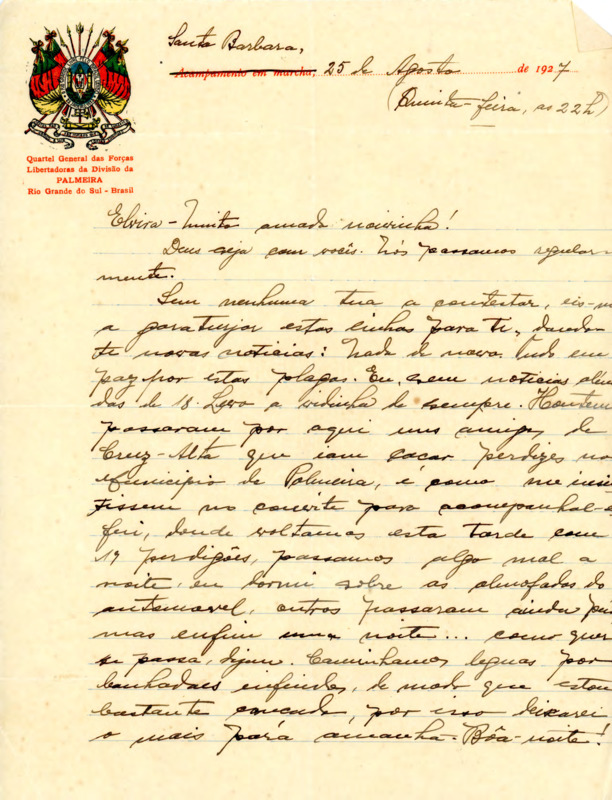 Santa Barbara,
Acampamento em marcha, 25 de Agosto de 1927
(Quinta-feira, as 22h)
Quartel General das Forças
Libertadoras da Divisão da
PALMEIRA
Rio Grande do Sul - Brasil
Elvira - Muito amada noivinha!
Deus seja com vocês. Nós passamos regular-
mente.
Sem nenhuma tua a contestar, eis-me
a garatujar estas linhas para ti, dando-
te novas noticias: Nada de novo. Tudo em
paz por estas plagas. Eu, sem noticias além
das de 18. Levo a vidinha de sempre. Hontem
passaram por aqui uns amigos de
Cruz-Alta que iam caçar perdizes no
Municipio de Palmeira, e como me insis-
tissem no convite para acompanhal-os
fui, donde voltamos esta tarde com
19 perdigões, passamos algo mal a
noite, eu dormi sobre as almofadas do
automovel, outros passaram ainda pior
mas enfim uma noite... como quer
se passa, dizem. Caminhamos leguas por
banhadaes infindos, de modo que estou
bastante cançado, por isso deixarei
o mais pará amanha. Bôa-noite!